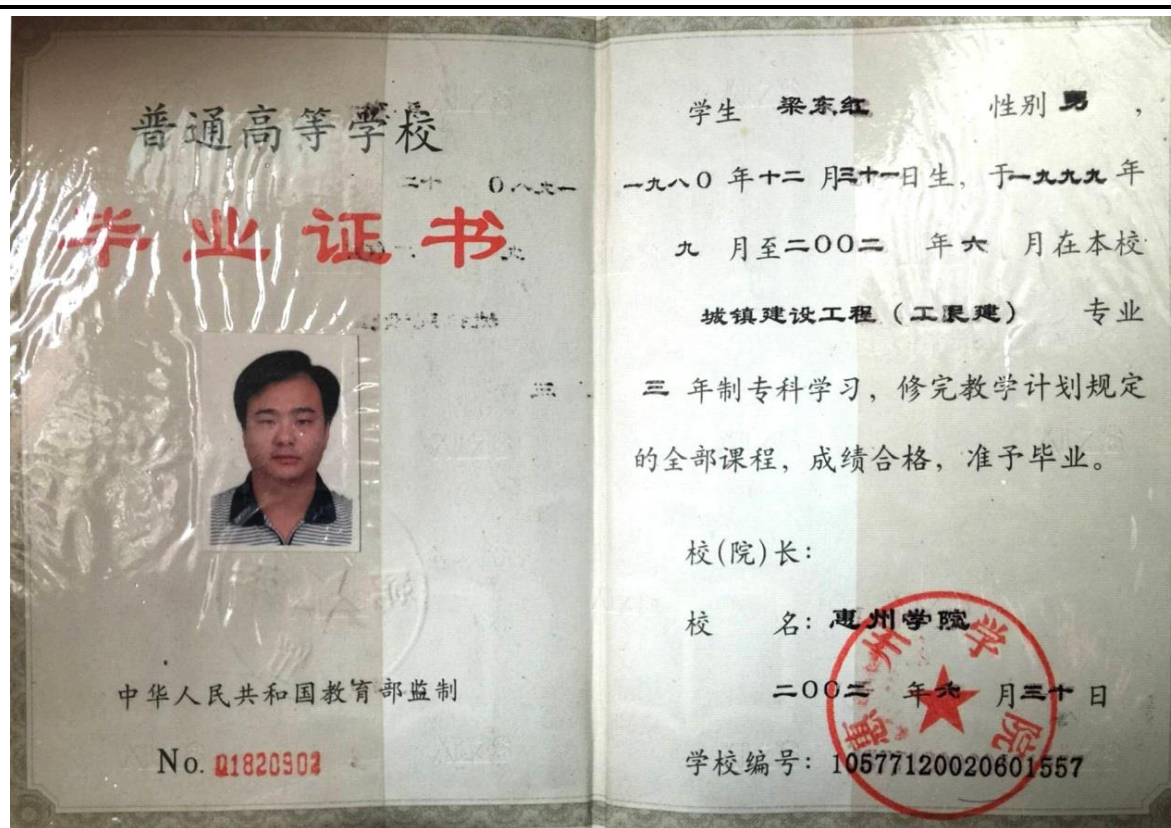 普通高等学校
毕业证书
中华人民共和国教育部监制
No. 01820902
学生 梁东红 性别 男，
一九八0 年十二 月三十一日生，于一九九九 年
九 月至二00二 年六 月在本校
城镇建设工程（工民建） 专业
三 年制专科学习，修完教学计划规定
的全部课程，成绩合格，准予毕业。
校(院)长：
校 名：惠州学院
二00二 年六 月三十 日
学校编号：10577120020601557
惠州学院